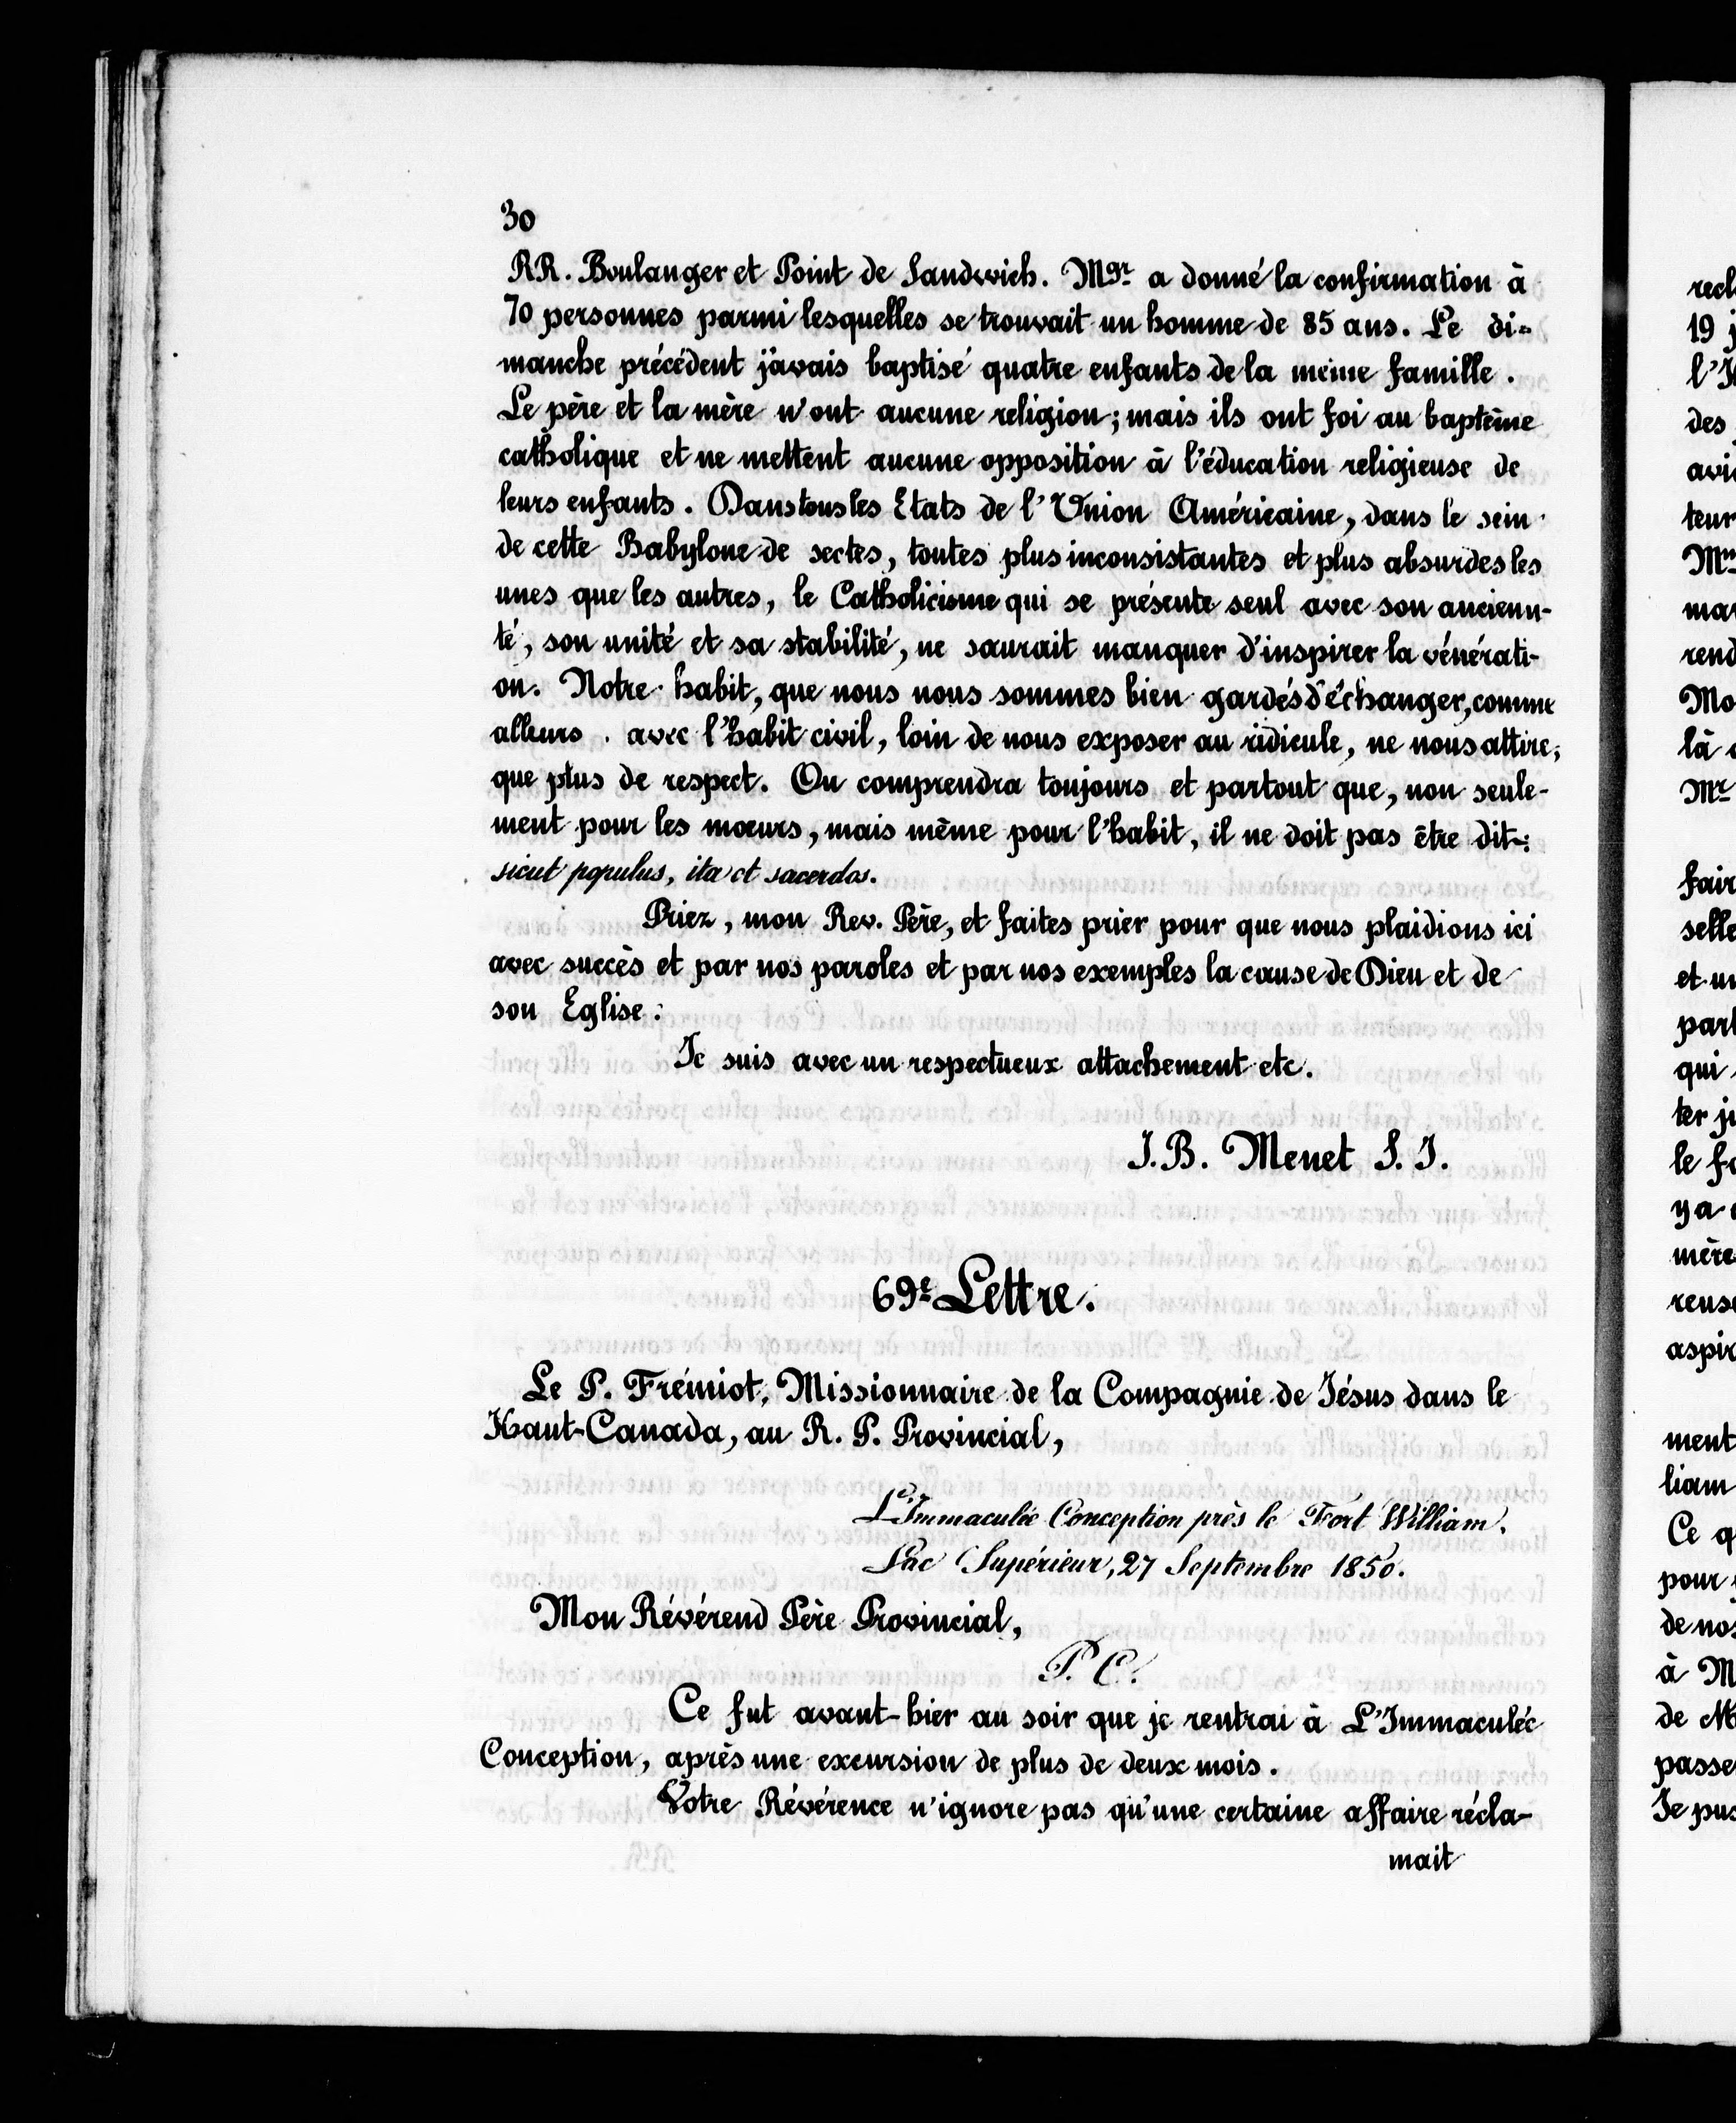 30
RR. Boulanger et Point de Sandwich. Mgr a donné la confirmation à
70 personnes parmi lesquelles se trouvait un homme de 85 ans. Le di-
manche précédent j'avais baptisé quatre enfants de la même famille.
Le père et la mère n'ont aucune religion; mais ils ont foi au baptême
catholique et ne mettent aucune opposition à l'éducation religieuse de
leurs enfants. Dans tous les Etats de l'Union Américaine, dans le sein
de cette Babylone de sectes, toutes plus inconsistantes et plus absurdes les
unes que les autres, le Catholicisme qui se présente seul avec son ancienn-
té, son unité et sa stabilité, ne saurait manquer d'inspirer la vénérati-
on. Notre habit, que nous nous sommes bien gardés d'échanger, comme
alleurs . avec l'habit civil, loin de nous exposer au ridicule, ne nous attire,
que plus de respect. On comprendra toujours et partout que, non seule-
ment pour les mœurs, mais même pour l'habit, il ne doit pas être dit:
sicut populus, ita et sacerdos.
Priez, mon Rev. Père, et faites prier pour que nous plaidions ici
avec succès et par nos paroles et par nos exemples la cause de Dieu et de
son Eglise:
Je suis avec un respectueux attachement etc.
J. B. Menet S. J.
69e Lettre.
Le P. Frémiot, Missionnaire de la Compagnie de Jésus dans le
Haut-Canada, au R. P. Provincial,
L'Immaculée Conception près le Fort William.
Lac Supérieur, 27 Septembre 1850.
Mon Révérend Père Provincial,
P. C.
Ce fut avant-hier au soir que je rentrai à L'Immaculée
Conception, après une excursion de plus de deux mois.
Votre Révérence n'ignore pas qu'une certaine affaire récla-
mait
19
des
pour
de nos
Je pus